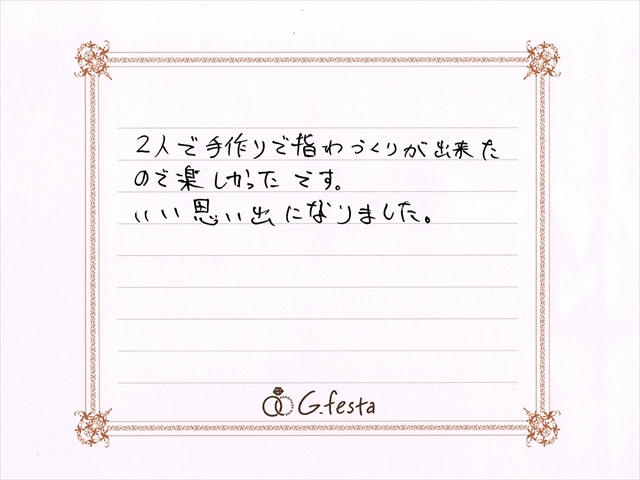 2人で手作りで指わづくりが出来た
ので楽しかったです。
いい思い出になりました。
G.festa